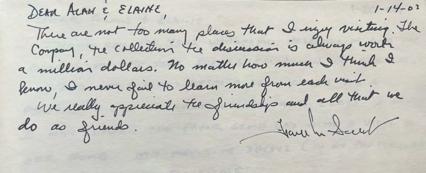 DEAR ALAN & ELAINE,
1-14-02
There are not too many places that I enjoy visiting. The
Company, the collection, the discussion is always worth
a million dollars. No matter how much I think I
know, I never fail to learn more from each visit.
We really appreciate the friendship and all that we
do as friends.